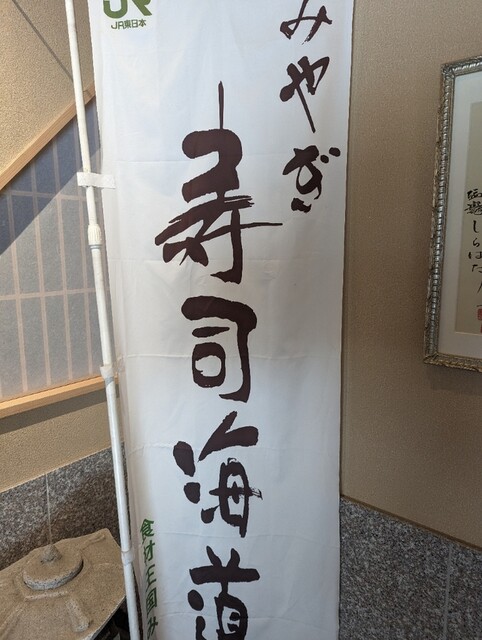 JR
JR東日本
みやぎ
寿司海道
食材王国み
しらはた